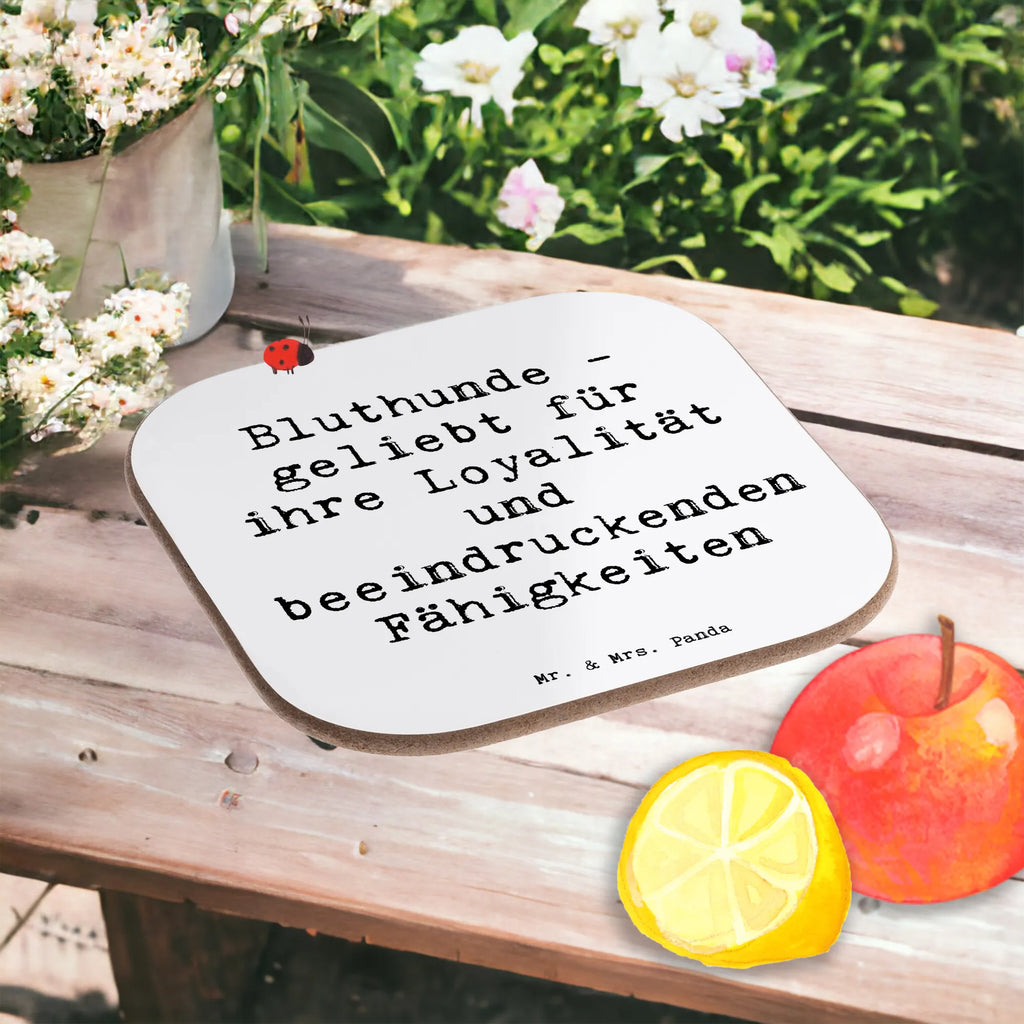 Bluthunde -
geliebt für
ihre Loyalität
und
beeindruckenden
Fähigkeiten
Mr. & Mrs. Panda